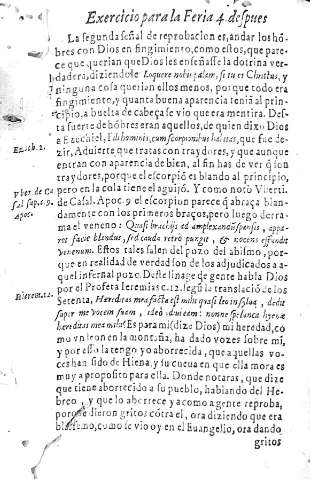 Exercicio para la Feria 4. despues
La segunda señal de reprobacion es, andar los hõ-
bres con Dios en fingimiento, como estos, que pare-
ce que querian que Dios les enseñasse la dotrina ver-
dadera, diziendole Loquere nobis palam, si tu es Christus, y
ninguna cosa querian ellos menos, porque todo era
fingimiento, y quanta buena aparencia teniã al prin-
cipio, a buelta de cabeça se vio que era mentira. Des-
ta suerte de hõbres eran aquellos, de quien dixo Dios
Ezech. 2.
a Ezechiel, Filii hominis, cum scorpionibus habitas, que fue de-
zir, Aduierte que tratas con traydores, y que aunque
entran con aparencia de bien, al fin has de ver q̃ son
traydores, porque el escorpiõ es blando al principio,
pero en la cola tiene el aguijõ. Y como notò Vberti.
Vber. de Ca
sal sup. c. 9.
Apoc.
de Casal. Apoc. 9 el escorpion parece q̃ abraça blan-
damente con los primeros braços, pero luego derra-
ma el veneno: Quasi brachijs ad amplexandũ spansis, appa-
ret facie blandus, sed cauda retrò pungit, & nocens effundit
venenum. Estos tales salen del pozo del abismo, por-
que en realidad de verdad son de los adjudicados a a-
quel infernal pozo. Deste linage de gente habla Dios
Hierem. 12.
por el Profeta Ieremias c. 12. segũ la translaciõ de los
Setenta, Hæreditas mea facta est mihi quasi leo in sylua, dedit
super me vocem suam, ideò odiui eam: nonne spelunca hyenæ
hæreditas mea mihi? Es para mi (dize Dios) mi heredad, co
mo vn leon en la montaña, ha dado vozes sobre mi,
y por esso la tengo yo aborrecida, que aquellas vo-
ces han sido de Hiena, y su cueua en que ella mora es
muy a proposito para ella. Donde notaras, que dize
que tiene aborrecido a su pueblo, hablando del He-
breo, y que lo aborrece y a como a gente reproba,
porque dieron gritos cõtra el, ora diziendo que era
blasfemo, como se vio oy en el Euangelio, ora dando
gritos